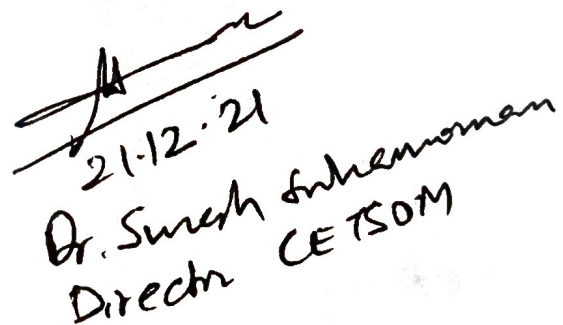 21.12.21
Dr. Suresh Subramoman
Director CETSOM